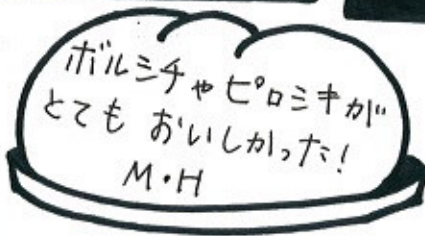 ボルシチやピロシキが
とても おいしかった!
M・H